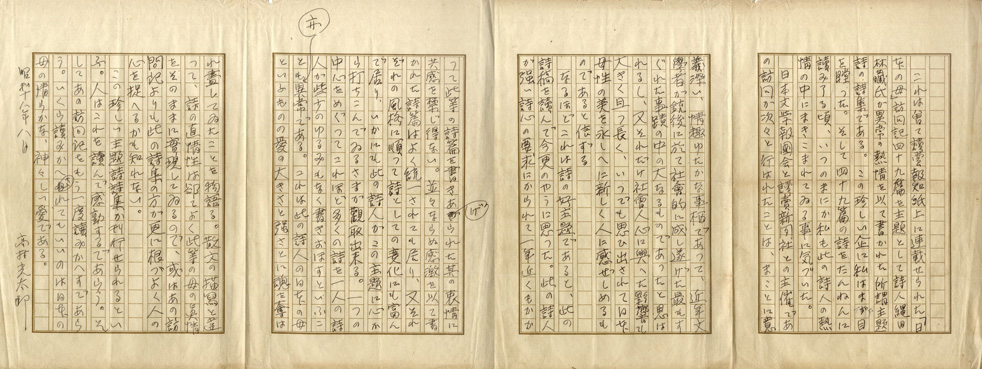 これは曾て讀賣報知紙上に連載せられた「日
本の母訪問記」四十九篇を主題として詩人縄田
林藏氏が異常の熱情を以て書かれた所謂主題
詩の詩集である。この珍しい企に私はまづ目
を瞠つた。そして四十九篇の詩をたんねんに
讀み了る頃、いつのまにか私も此の詩人の熱
情の中にまきこまれてゐる事に気づいた。
日本文學報國會と讀賣新聞社との主催であ
の訪問が次々と行はれたことは、まことに意
義深い、情趣ゆたかな事柄であつて、近年文
學者が銃後に於て社會的に成し遂げた最もす
ぐれた事蹟の中の大なるものであつたと思は
れるし、又それだけ社會人心に與へた影響も
大きく且つ長く、いつでも思ひ出されては日本
母性の美を永しへに新しく人に感ぜしめるも
のであると信ずる。
なるほどこれは詩の好主題であると、此の
詩稿を讀んで今更のやうに思つた。此の詩人
が強い詩心の要求にかられて一年近くもかか
つて此等の詩篇を書きあげられた其の衷情に
共感を禁じ得ない。並々ならぬ感激を以て書
かれた詩篇はよく統一されても居り、又それ
ぞれの風格に順つて詩としての変化にも富ん
で居り、いかにも此の詩人がこの主題に心か
ら打ちこんでゐるさまが観取出来る。一つの
中心をめぐつてこれほど多くの詩を一人の詩
人が些少のゆるみもなく書きおほすといふこ
とも亦異常である。これは此の詩人の日本の母
といふものへの愛の大きさと強さとに魂を奪は
れ盡してゐたことを物語る。散文の描寫と違
つて、詩の直情性は恐しく此等の母の眞情
をそのままに實現してゐるので、或はあの訪
問記よりも此の詩集の方が更に根づよく人の
心を捉へるかも知れない。
この珍しい主題詩詩集が刊行せられるとい
ふ。人はこれを讀んで感動するであらう。そ
してあの訪問記をもう一度讀みかへすであら
う。いくら讀みかへされてもいいのは日本の
母の清らかな、神々しい愛である。
昭和十八年八月
高村光太郎